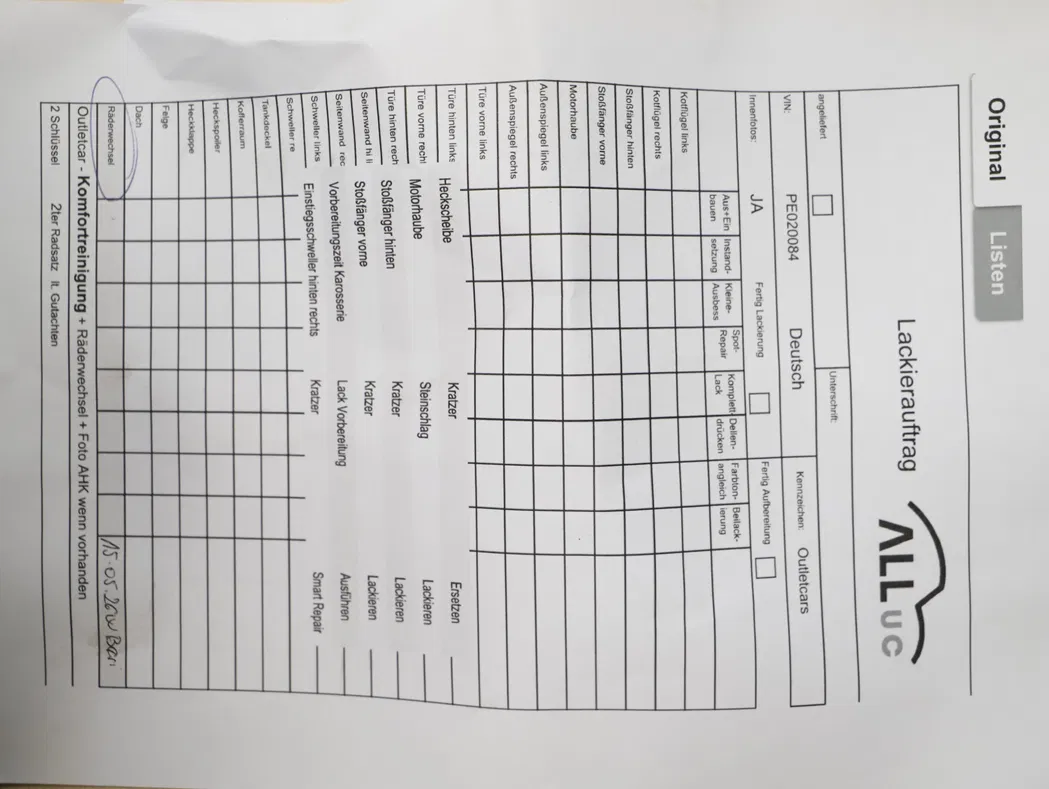 Original Listen
Lackierauftrag
ALL UC
angeliefert
Unterschrift:
VIN: PE020084 Deutsch Kennzeichen: Outletcars
Innenfotos: JA Fertig Lackierung Fertig Aufbereitung
Aus+Ein bauen
Instand- setzung
Kleine- Ausbess
Spot- Repair
Komplett- Lack
Dellen- drücken
Farbton- angleich
Beilack- ierung
Kotflügel links
Kotflügel rechts
Stoßfänger hinten
Stoßfänger vorne
Motorhaube
Außenspiegel links
Außenspiegel rechts
Türe vorne links
Türe hinten links Heckscheibe Kratzer Ersetzen
Türe vorne recht Motorhaube Steinschlag Lackieren
Türe hinten rech Stoßfänger hinten Kratzer Lackieren
Seitenwand hi li Stoßfänger vorne Kratzer Lackieren
Seitenwand rec Vorbereitungszeit Karosserie Lack Vorbereitung Ausführen
Schweller links Einstiegsschweller hinten rechts Kratzer Smart Repair
Schweller re
Tankdeckel
Kofferraum
Heckspoiler
Heckklappe
Felge
Dach
Räderwechsel
Outletcar - Komfortreinigung + Räderwechsel + Foto AHK wenn vorhanden
2 Schlüssel 2ter Radsatz lt. Gutachten